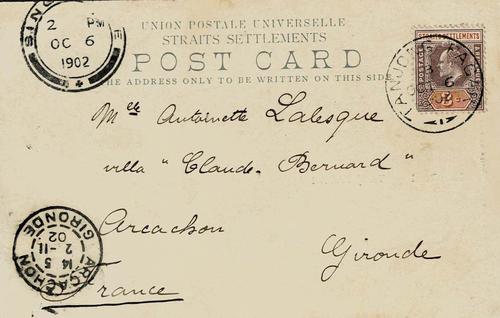 UNION POSTALE UNIVERSELLE
STRAITS SETTLEMENTS
POST CARD
THE ADDRESS ONLY TO BE WRITTEN ON THIS SIDE
2 PM
OC 6
1902
STRAITS SETTLEMENTS
TANJONG PAG
Melle Antoinette Lalesque
villa " Claude-Bernard "
Arcachon
Gironde
France
ARCACHON
14 5
2 -11
02
GIRONDE